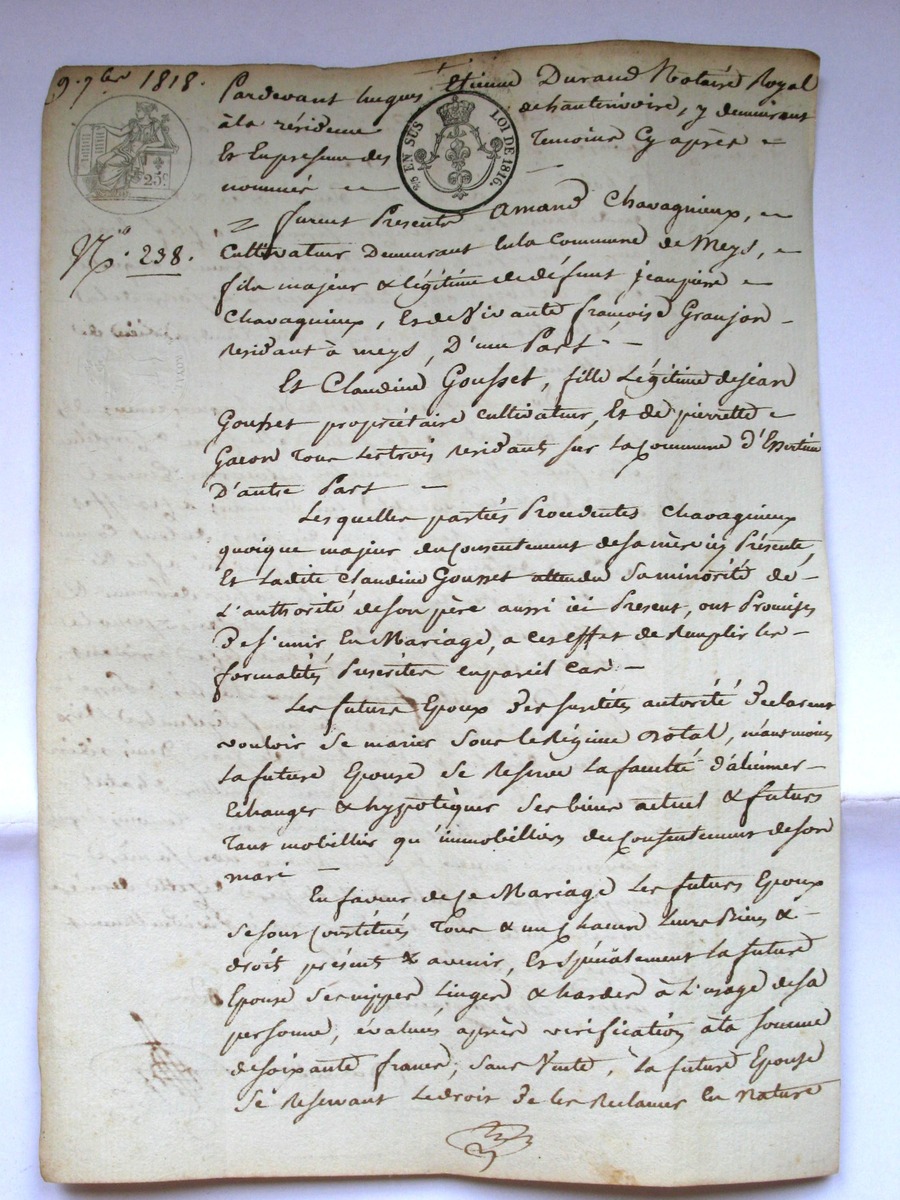 9. 7bre 1818.
Pardevant hugues Etienne Durand Notaire Royal
à la résidence de hauterivoire, y demeurant
Et En présence des Temoins Cy après
nommés
25c
25 EN SUS
LOI DE 1816.
N.º 238.
furent Présents Amand Chavagnieux,
Cultivateur Demeurant En la Commune de Meys,
fils majeur & légitime de défunt jeanpierre
Chavagnieux, Et de Vivante françoise Granjon
residant à meys, D'une Part
Et Claudine Gousset, fille Légitime de jean
Gousset propriétaire cultivateur, Et de pierrette
Gacon Tous Les trois residants sur La Commune d'Essertine
D'autre Part
Lesquelles partiés Procedentes Chavagnieux
quoique majeur du Consentement de sa mère ici Présente,
Et Ladite Claudine Gousset attendu Sa minorité de
L'authorité de son père aussi ici Present, ont Promises
De s'unir En Mariage, a ces effet de Remplir les
formalités Prescrites en pareil Cas
Les futurs Epoux Des susdites autorité Déclarent
vouloir Se marier Sous le Régime Dotal, néanmoins
La future Epouse Se Reserve La faculté d'aliénner
Echanger & hypotèquer Ses biens actuel & futurs
Tant mobillier qu'immobilliers du Consentement de son
mari
En faveur de Ce Mariage Les futurs Epoux
Se sont Constitués Tous & un Chacun Leurs Biens &
droit présents & avenir, Et Spécialement La future
Epouse Ses nippes Linges & hardes à L'usage de sa
personne, évalués après vérification à la somme
de soixante francs, sans Vente, La future Epouse
Se Reservant Le droit De les Reclamer En Nature